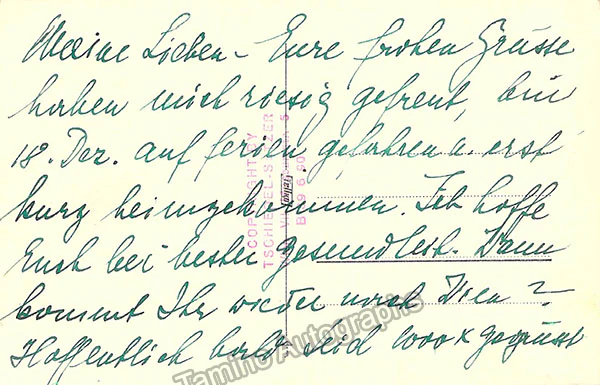 Meine Lieben – Eure frohen Grüsse
haben mich riesig gefreut, bin
18. Dez. auf Ferien gefahren u. erst
kurz heimgekommen. Ich hoffe
Euch bei bester Gesundheit. Wann
kommt Ihr wieder nach Wien?
Hoffentlich bald seid 1000 x gegrüsst
COPYRIGHT BY
TSCHIEDEL-SELZER
B 39 6 60
Tamino Autographs